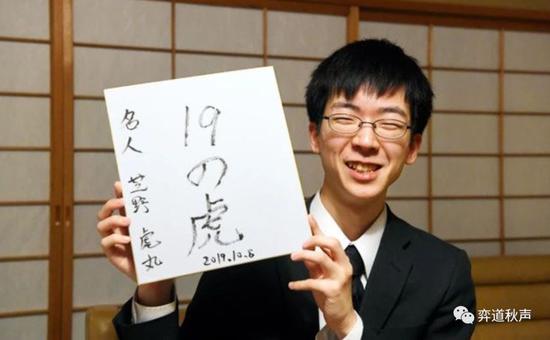 19の虎
名人 芝野 虎丸
2019.10.8
弈道秋声